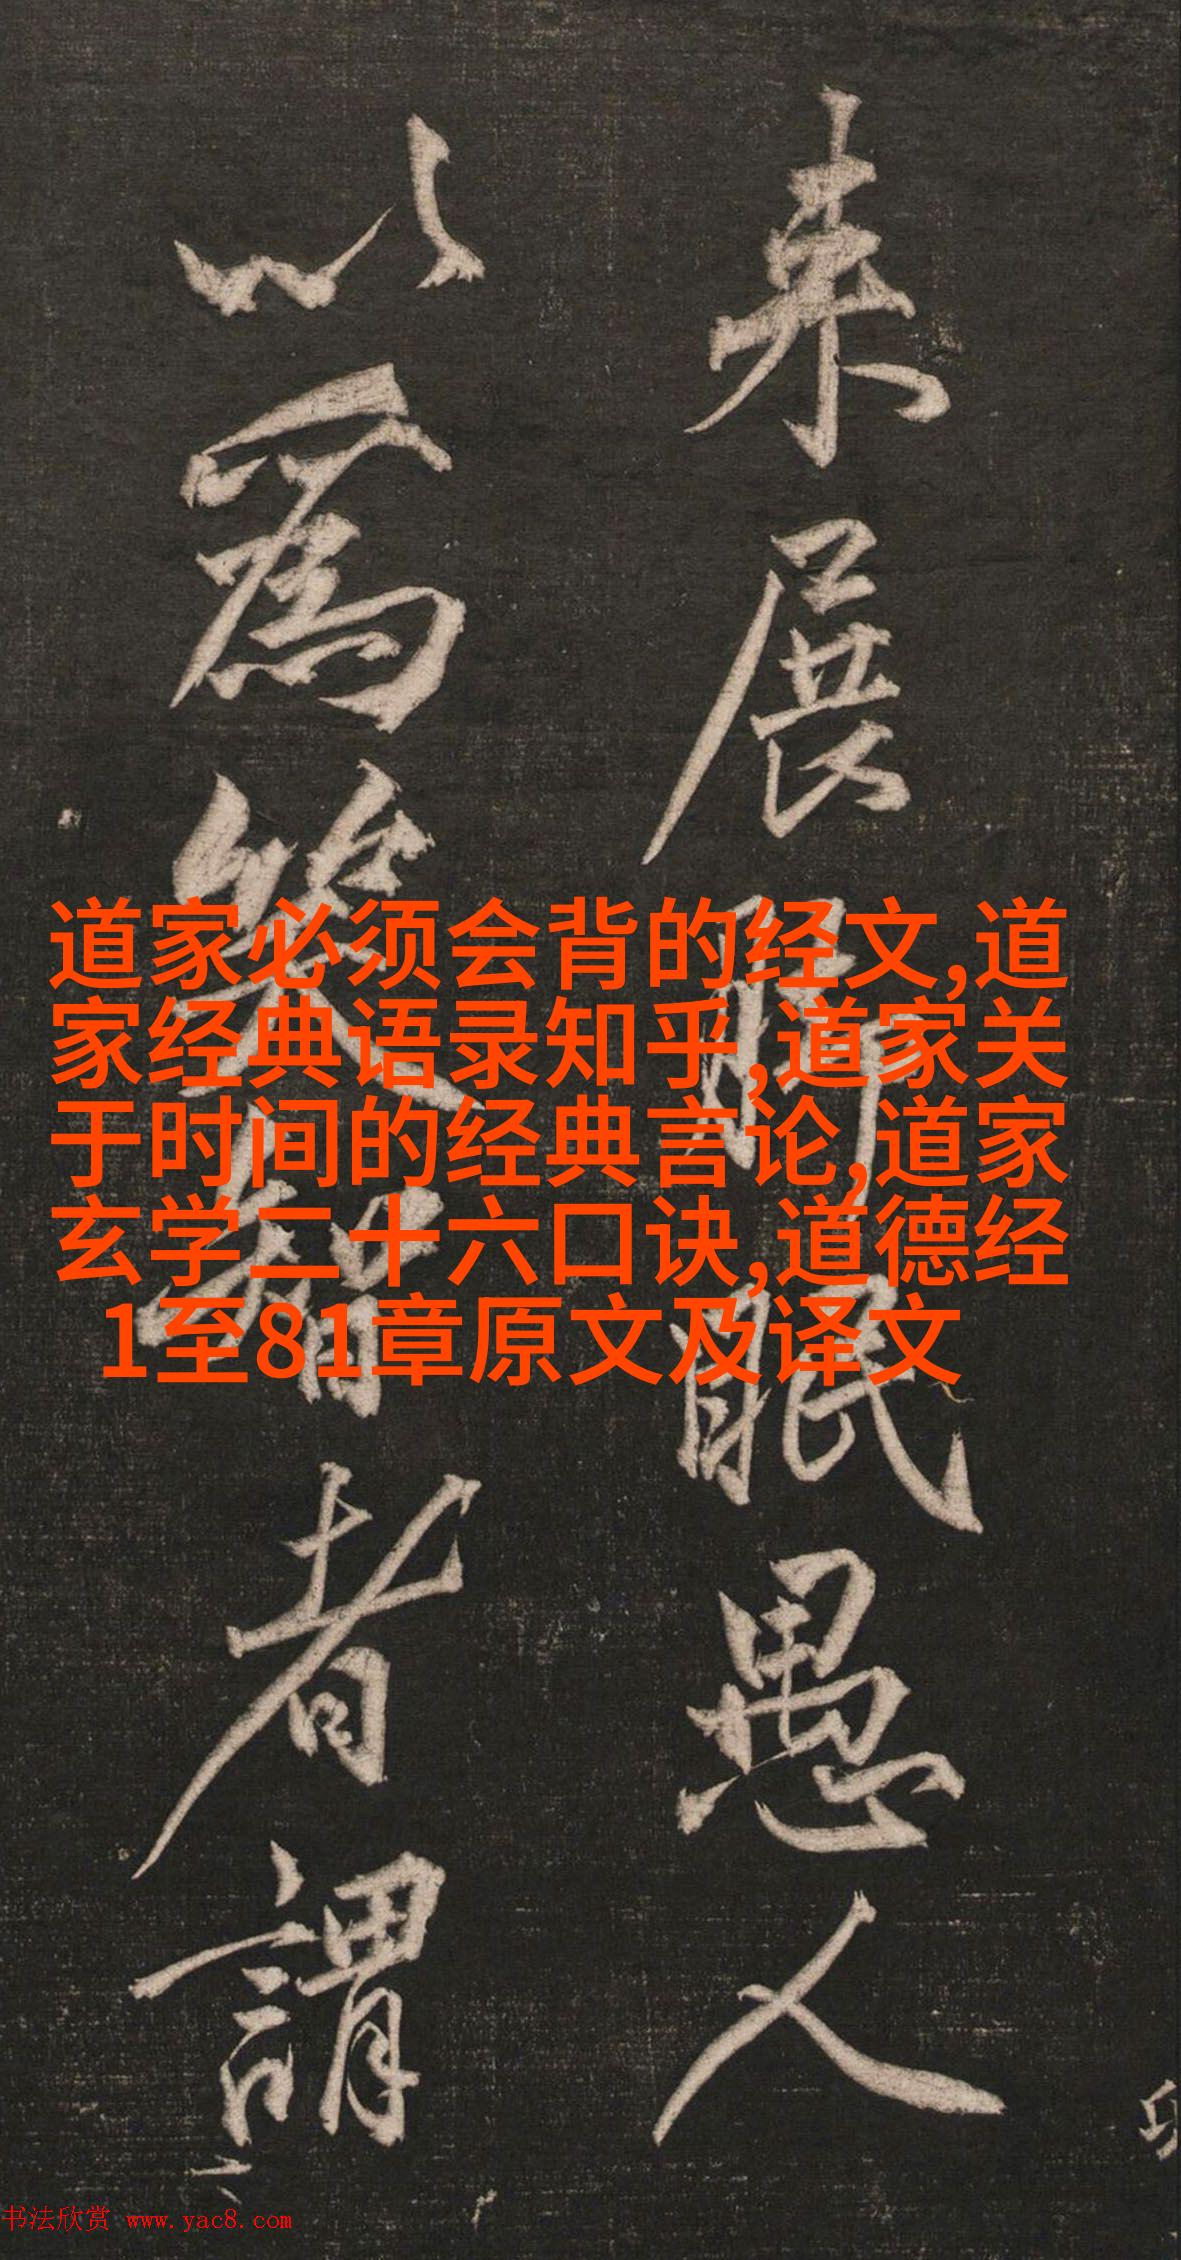 来展脚眠愚人
以為笑智者謂
道家必须会背的经文,道
家经典语录知乎,道家关
于时间的经典言论,道家
玄学二十六口诀,道德经
1至81章原文及译文
书法欣赏 www.yac8.com